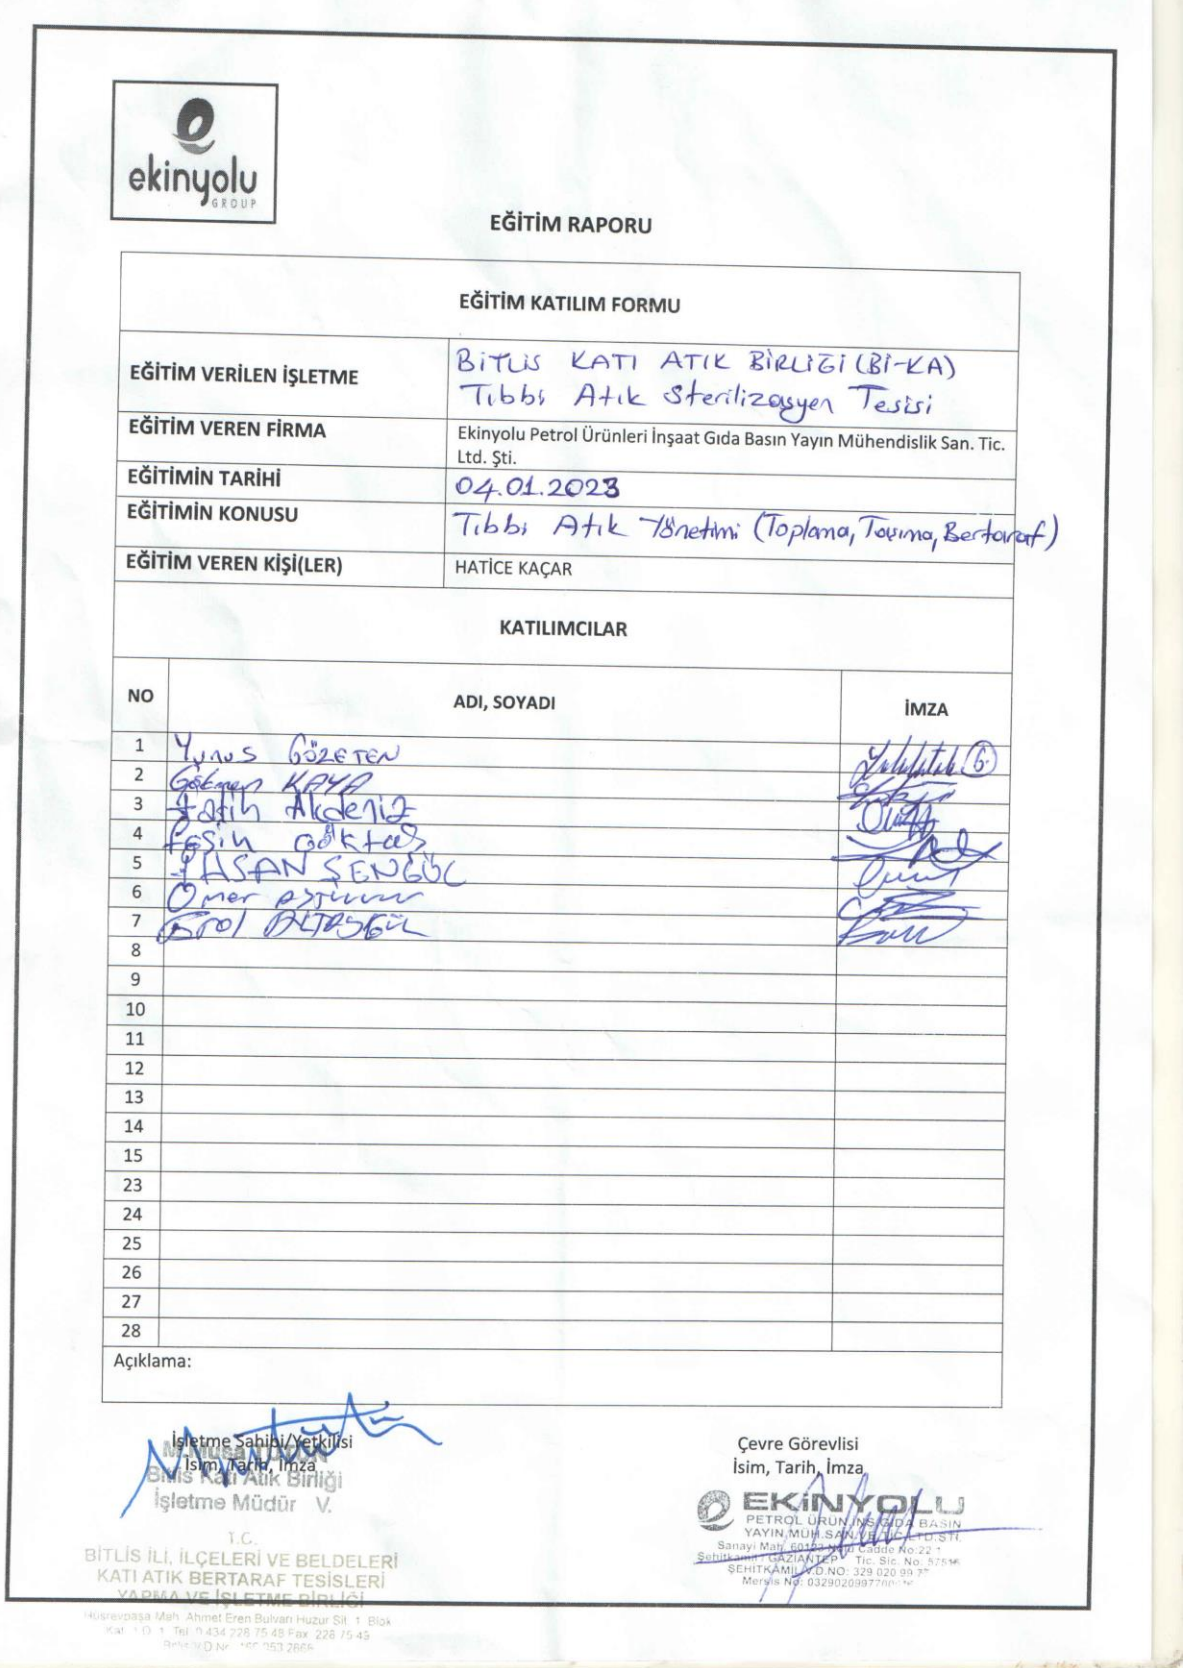 ekinyolu
GROUP
EĞİTİM RAPORU
EĞİTİM KATILIM FORMU
EĞİTİM VERİLEN İŞLETME
BİTLİS KATI ATIK BİRLİĞİ (Bİ-KA)
Tıbbi Atık Sterilizasyon Tesisi
EĞİTİM VEREN FİRMA
Ekinyolu Petrol Ürünleri İnşaat Gıda Basın Yayın Mühendislik San. Tic.
Ltd. Şti.
EĞİTİMİN TARİHİ
04.01.2023
EĞİTİMİN KONUSU
Tıbbi Atık Yönetimi (Toplama, Taşıma, Bertaraf)
EĞİTİM VEREN KİŞİ(LER)
HATİCE KAÇAR
KATILIMCILAR
NO
ADI, SOYADI
İMZA
1 Yunus GÖZETEN
2 Gökmen KAYA
3 Fatih Akdeniz
4 Fesih Göktaş
5 İHSAN ŞENGÜL
6 Ömer
7 Erol
8
9
10
11
12
13
14
15
23
24
25
26
27
28
Açıklama:
İşletme Sahibi/Yetkilisi
İsim, Tarih, İmza
M.Musa
Bitlis Katı Atık Birliği
İşletme Müdür V.
T.C.
BİTLİS İLİ, İLÇELERİ VE BELDELERİ
KATI ATIK BERTARAF TESİSLERİ
YAPMA VE İŞLETME BİRLİĞİ
Hüsrevpaşa Mah. Ahmet Eren Bulvarı Huzur Sit. 1. Blok
Tel: 0 434 228 75 48 Fax: 228 75 49
Çevre Görevlisi
İsim, Tarih, İmza
EKİNYOLU
PETROL ÜRÜN.İNŞ.GIDA BASIN
YAYIN.MÜH.SAN.VE TİC.LTD.ŞTİ.
Sanayi Mah. Cadde No:22
Şehitkamil / GAZİANTEP Tic. Sic. No:
ŞEHİTKAMİL V.D.NO: 329 020 99 77
Mersis No: